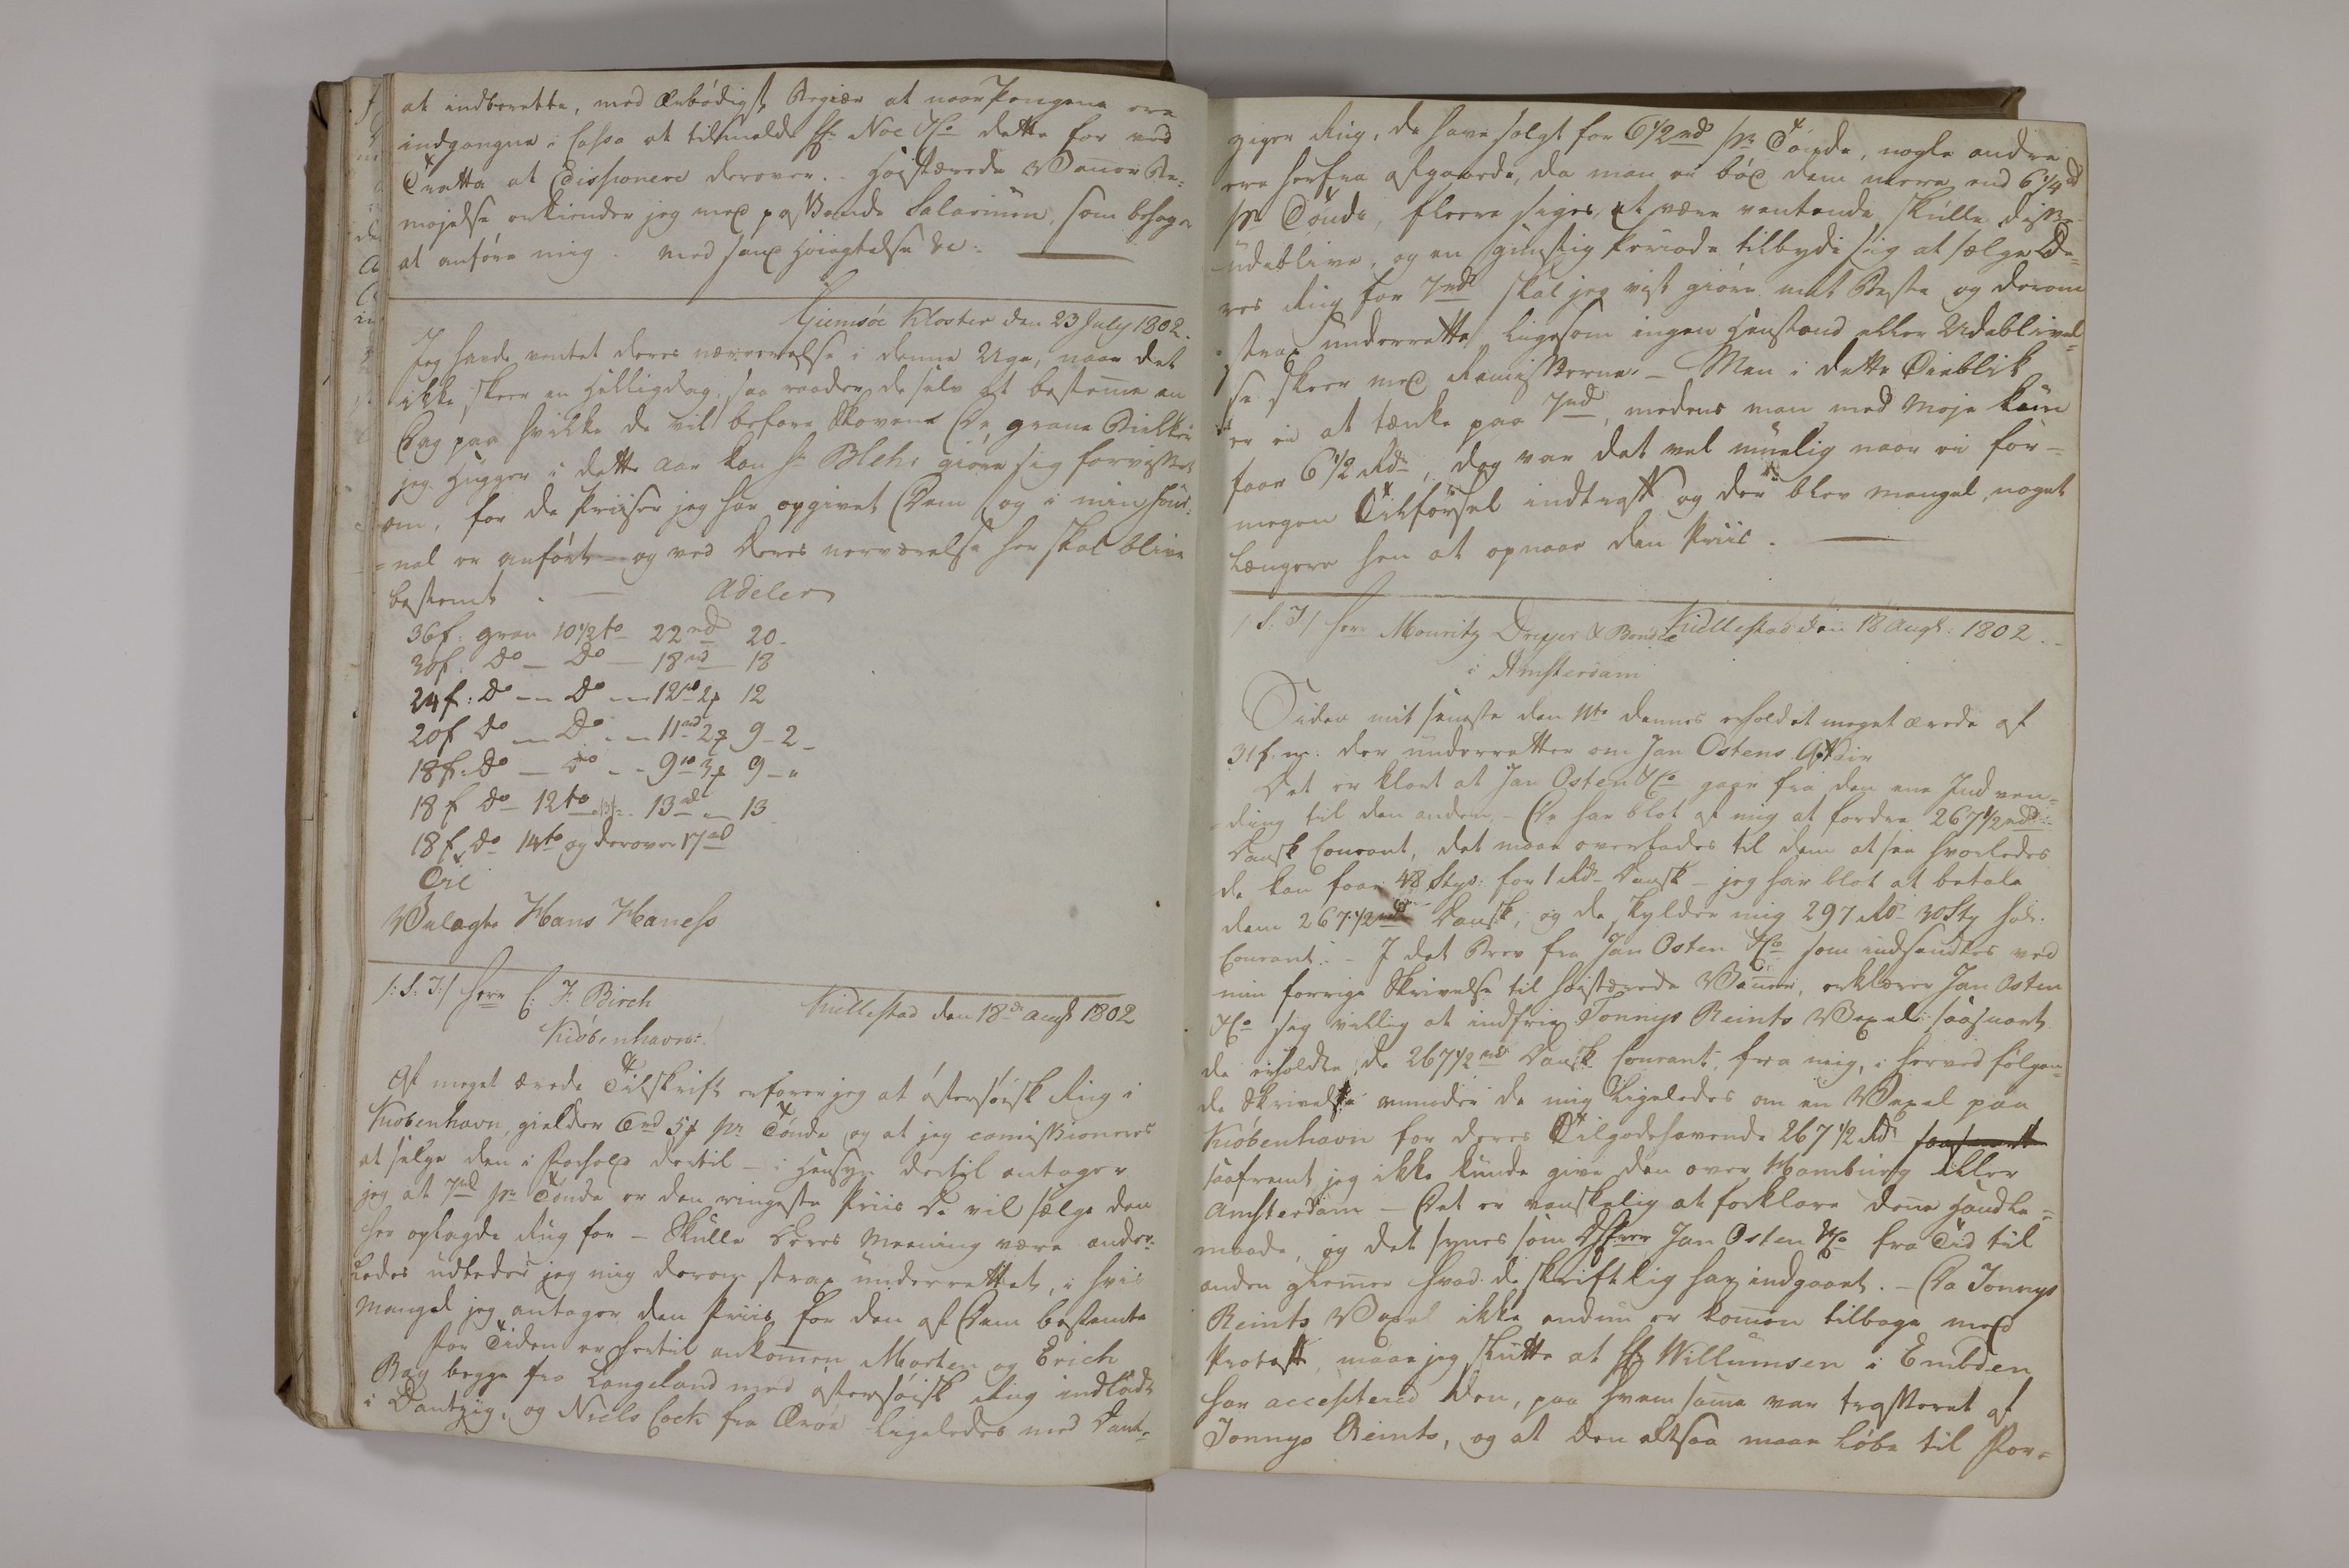 at indberette, med Ærbødigst Begiær at naar Pengene ere
indgangne i Cassa at tilmelde Hr. Noe & Co dette for ved
Tratta at disponere derover. Høistærede Venner Be¬
møjelse erkiender jeg med passende Salarium, som behag
at anføre mig. med sand Høiagtelse &c:
Giemsøe Kloster den 23 July 1802.
Jeg havde ventet deres nærværelse i denne Uge, naar det
ikke skeer en Helligdag, saa raader de selv at bestemme en
Dag paa hvilke de vil befare Skovene De grane Bielker
jeg hugger i dette aar kan Hr Blehr giøre sig forvisset
om, for de Priiser jeg har opgivet Dem og i min Jour¬
=nal er anført og ved Deres nærværelse her skal blive
bestemt. Adeler
36 f: gran 10 1/2 to 22 rd 20
30 f. do — do — 18 rd 18
24 f: do — do — 12 rd 2 12
20 f do — do — 11 rd 2 9 - 2 -
18 f: do — do — 9 rd 3 9 - "
18 f do 12 to 13 rd — 13
18 f do 14 to og derover 17 rd
Til
Velagte Hans Haness
/: S: T:/ Herr C: F: Birch Kiellestad den 18de Augst 1802
Kiøbenhavn:
Af meget ærede Tilskrift erfarer jeg at østersøisk Rug i
Kiøbenhavn, gielder 6 rd 5 pr Tønde og at jeg comissioneres
at sælge den i Forhold dertil – i Hensyn dertil antager
jeg at 7 rd pr Tønde er den ringeste Priis De vil sælge den
her oplagde Rug for – Skulle Deres Meening være ander¬
ledes udbeder jeg mig derom strax underrettet, i hvis
Mangel jeg antager den Priis for den af Dem bestemte
For Tiden er hertil ankommen Morten og Erich
Bay begge fra Langeland med østersøisk Rug indladt
i Dantzig, og Niels Cock fra Ærøe ligeledes med Dant¬
ziger Rug, de have solgt for 6 1/2 rd pr Tønde, nogle andre
ere herfra afgaaede, da man ei bød dem mere end 6 1/4 rd
pr Tønde, fleere siges, at være ventende skulle disse
udeblive, og en gunstig Periode tilbyde sig at sælge De¬
res Rug for 7 rd skal jeg vist giøre mit Beste og derom
strax underrette ligesom ingen Henstand eller Udeblivel¬
se skeer med Remisserne – Men i dette Øieblik
er ei at tænke paa 7 rd, medens man med Møje kun
faar 6 1/2 Rdr, dog var det vel muelig naar ei for¬
megen Tilførsel indtraf og der blev Mangel, noget
længere hen at opnaae den Priis.
/S: T/ Herr Mouritz Dreyer & Bondze Kiellestad den 18 Augst: 1802.
i Amsterdam
Siden mit seneste den 11te dennes erholdet meget ærede af
31 f. m: der underretter om Jan Ostens Affair
Det er klart at Jan Osten & Co gaar fra den ene Indven¬
ding til den anden, – De har blot af mig at fordre 267 1/2 rd
Dansk Courant, det maae overlades til dem at see hvorledes
de kan faae 48 Styr: for 1 Rd Dansk – jeg har blot at betale
dem 267 1/2 rd Dansk, og de skylder mig 297 Rd 30 Sty hol:
Courant. – I det Brev fra Jan Osten & Co som indsendtes ved
min forrige Skrivelse til høistærede Venner, erklærer Jan Osten
& Co sig villig at indfrie Tonnys Reints Vexel saasnart
de erholdte, de 267 1/2 rd Dansk Courant, fra mig, i herved følgen¬
de Skrivelse anmoder de mig ligeledes om en Vexel paa
Kiøbenhavn for deres Tilgodehavende 267 1/2 Rd saasnart
saafremt jeg ikke kunde give den over Hamburg eller
Amsterdam – Det er vanskelig at forklare denne Handle¬
maade, og det synes som Hherrer Jan Osten & Co fra Tid til
anden glemmer hvad de skriftlig har indgaaet. – Da Tonnys
Reints Vexel ikke endnu er kommen tilbage med
Protest, maae jeg slutte at Hr Willumsen i Embden
har acceptered den, paa hvem samme var trasseret af
Tonnys Reints, og at den altsaa maae løbe til For¬